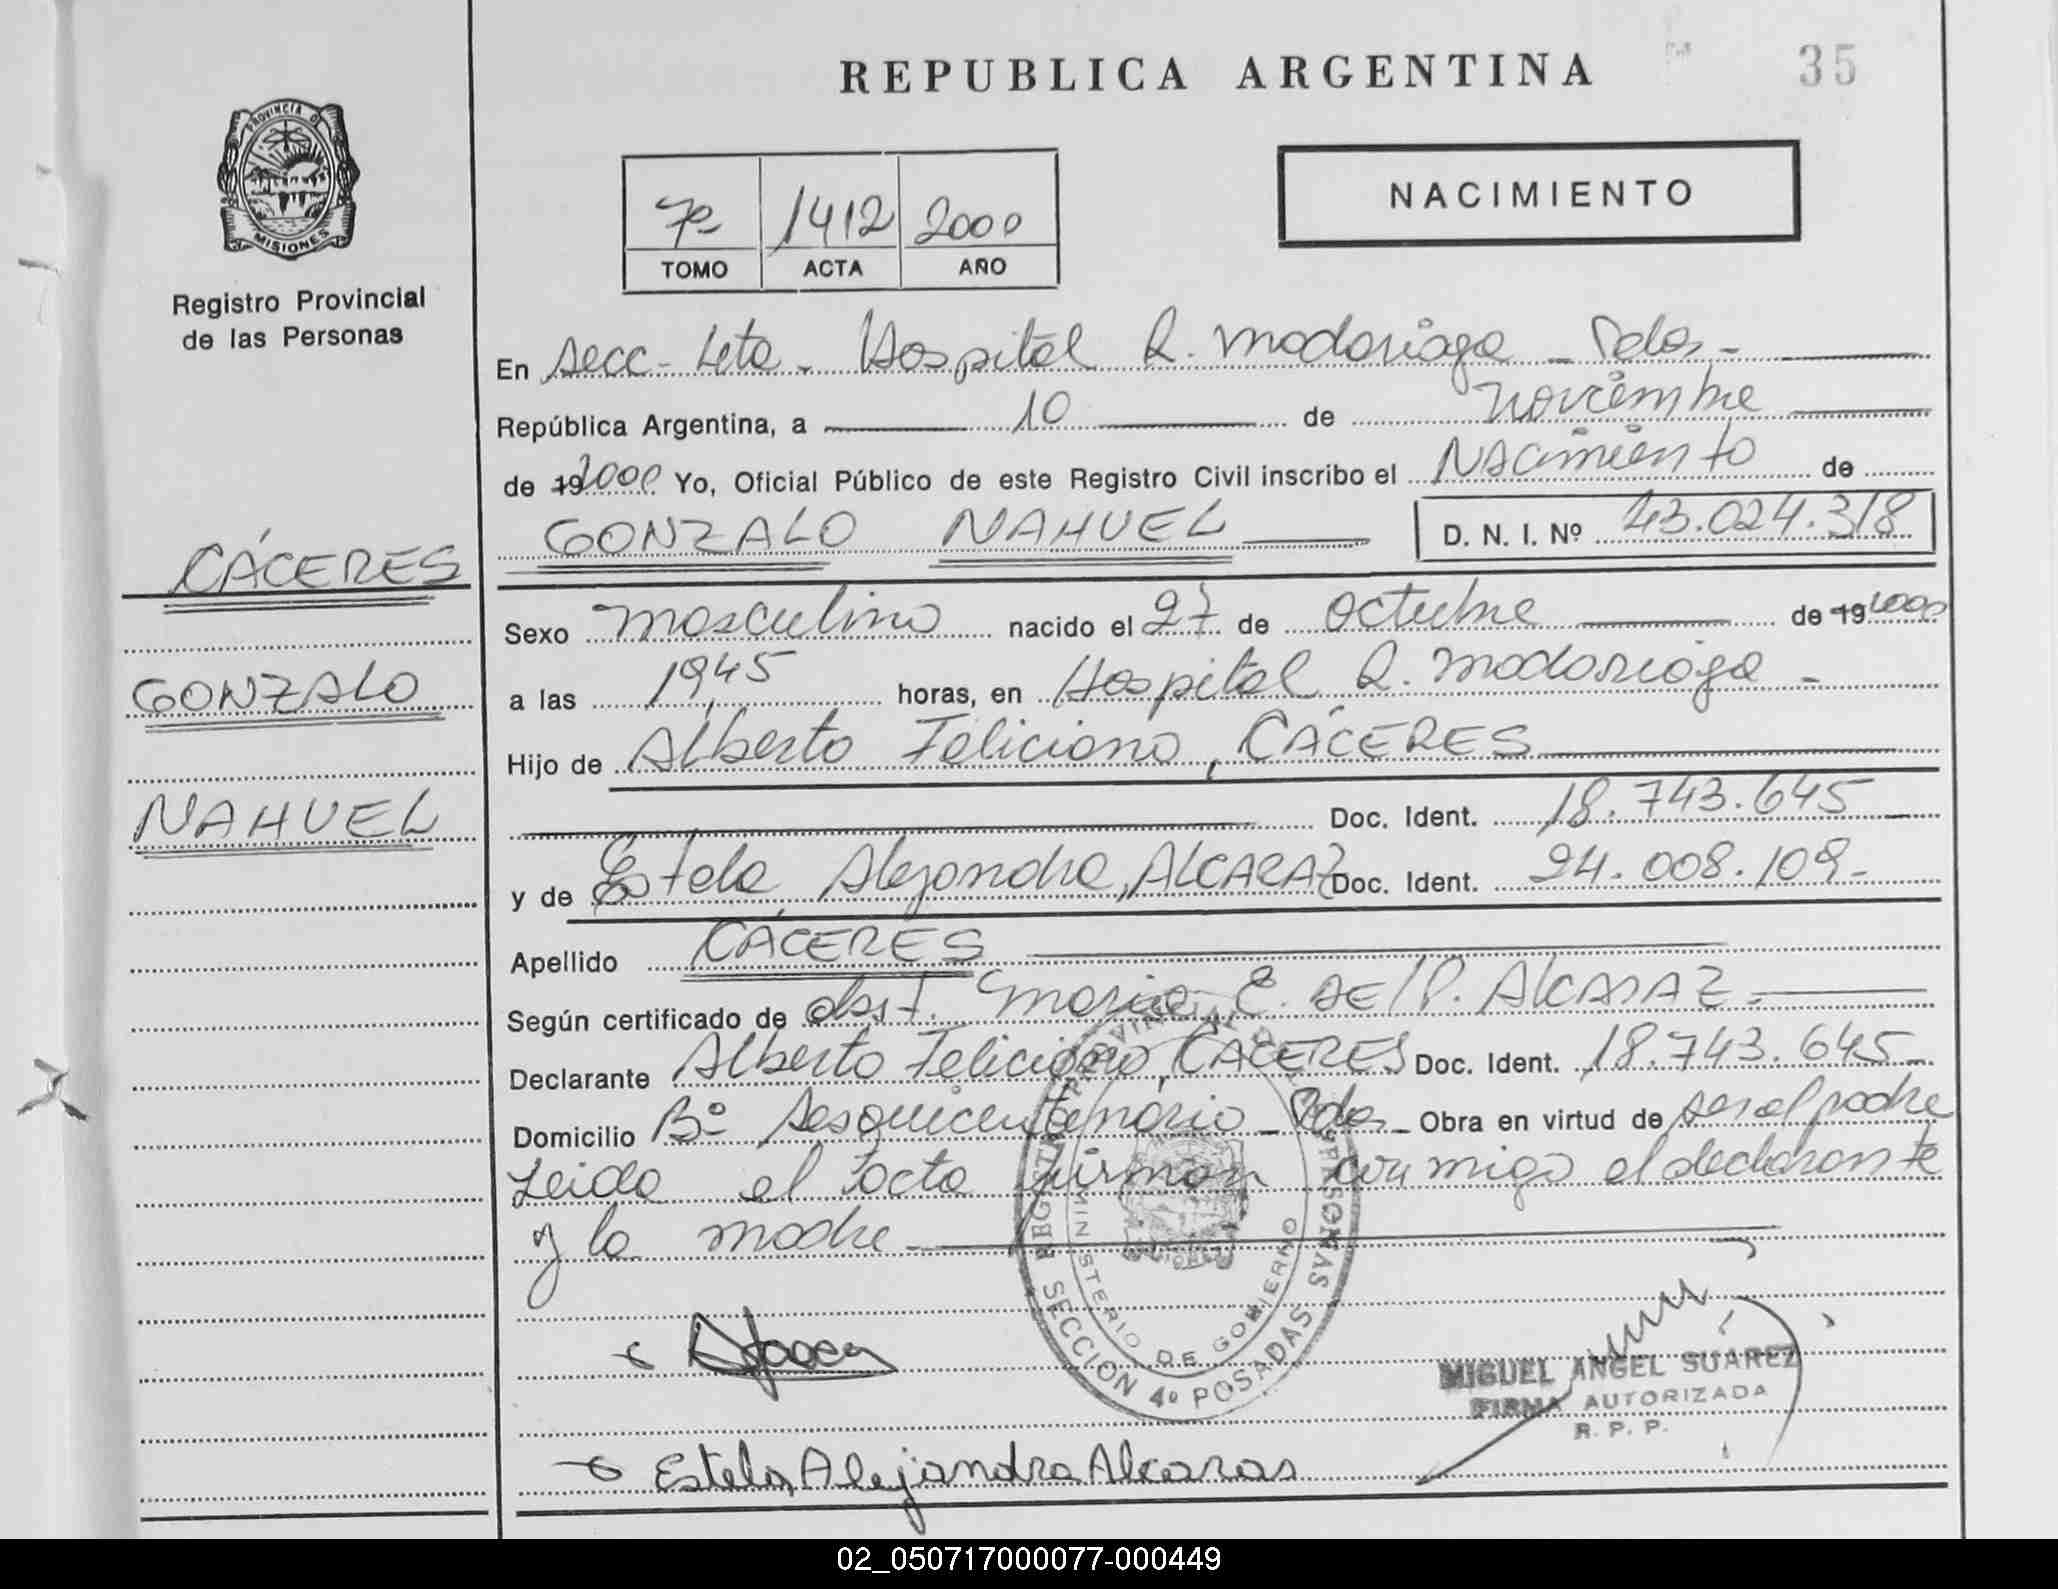 REPUBLICA ARGENTINA
35
PROVINCIA DE
MISIONES
Registro Provincial
de las Personas
7º 1412 2000
TOMO ACTA AÑO
NACIMIENTO
En Secc- 4ta. Hospital R. Madariaga - Pdas -
República Argentina, a 10 de noviembre
de 19 2000 Yo, Oficial Público de este Registro Civil inscribo el Nacimiento de
GONZALO NAHUEL D. N. I. Nº 43.024.318
CÁCERES
GONZALO
NAHUEL
Sexo masculino nacido el 27 de octubre de 19 2000
a las 19,45 horas, en Hospital R. Madariaga -
Hijo de Alberto Feliciano, CÁCERES
Doc. Ident. 18.743.645
y de Estela Alejandra, ALCARAZ Doc. Ident. 24.008.109-
Apellido CÁCERES
Según certificado de obst. Maria E. DEl P. AlCARAZ.
Declarante Alberto Feliciano, CACERES Doc. Ident. 18.743.645-
Domicilio Bº Sesquicentenario - Pdas - Obra en virtud de ser el padre
Leida el acta firman conmigo el declarante
y la madre
REGISTRO PROVINCIAL DE LAS PERSONAS
MINISTERIO DE GOBIERNO
SECCION 4º POSADAS
MIGUEL ANGEL SUAREZ
FIRMA AUTORIZADA
R. P. P.
Estela Alejandra Alcaras
02_050717000077-000449